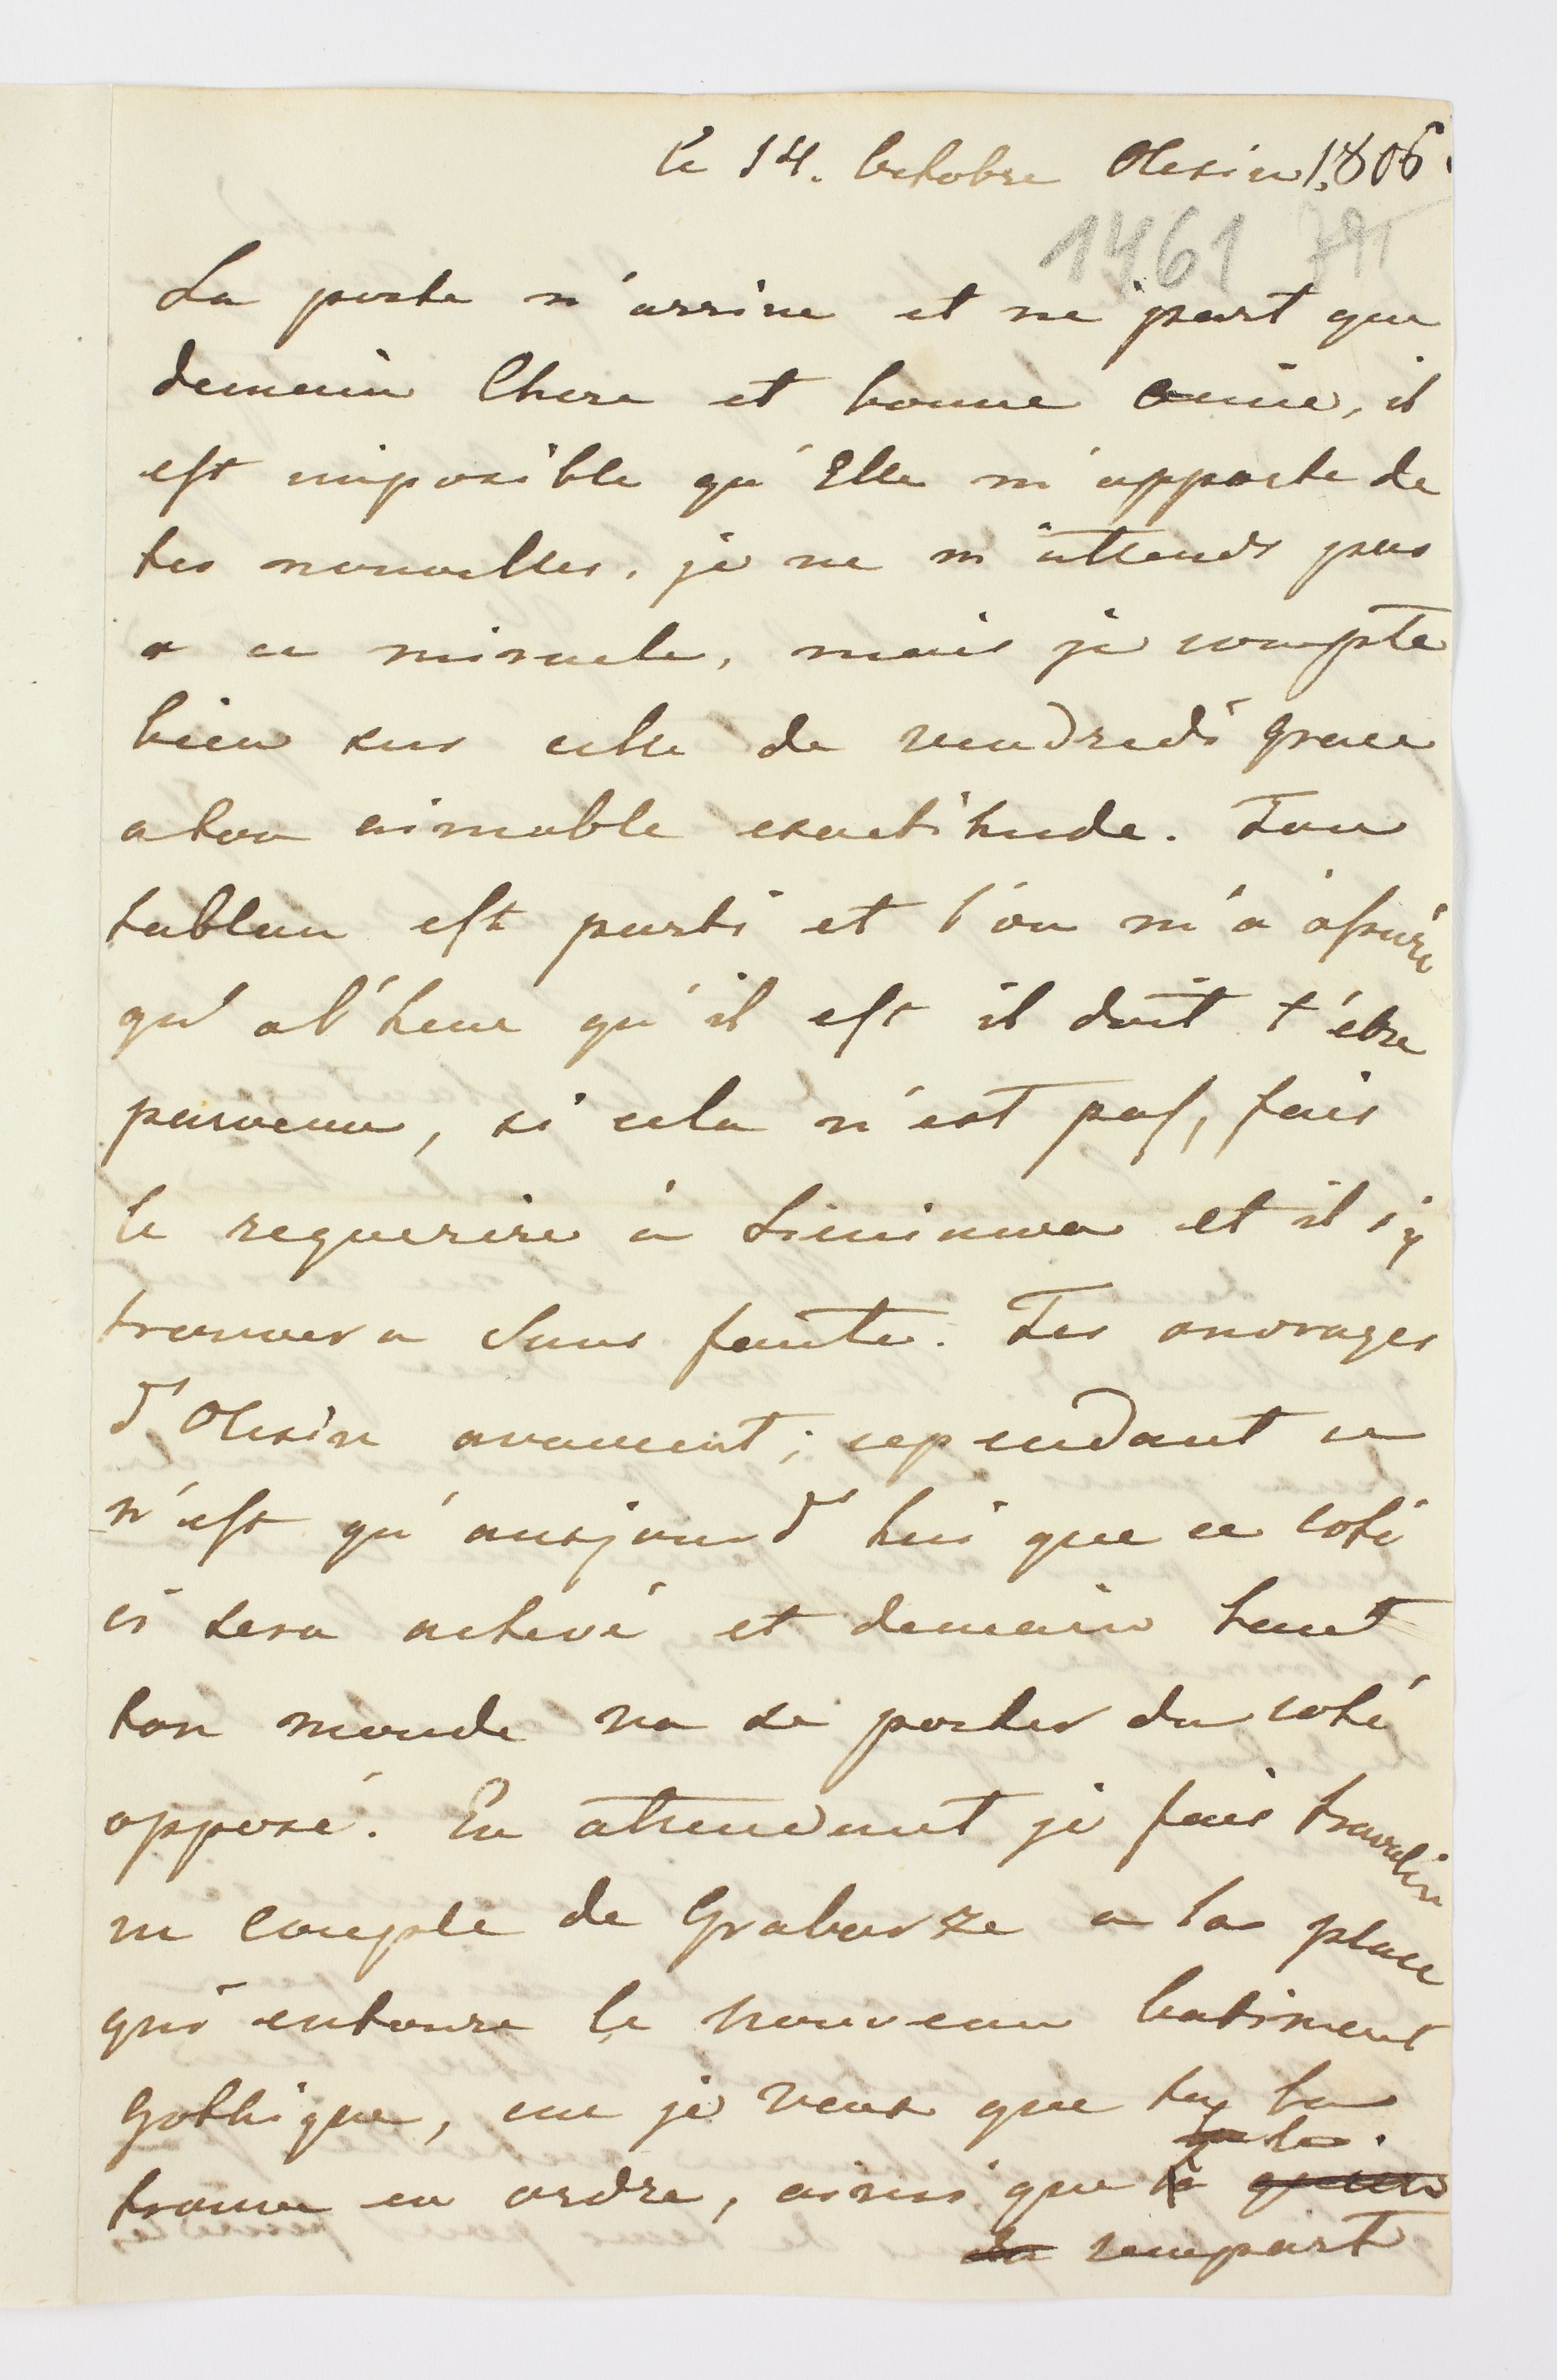 le 14. Octobre Olesin 1806.
1461
La poste n'arrive et ne part que
demain Chere et bonne amie, il
est imposible qu'Elle m'apporte de
tes nouvelles, je ne m'attends pas
a ce miracle, mais je compte
bien sur celle de vendredi grace
a ton aimable exactitude. Ton
tableau est parti et l'on m'a assuré
qu'a l'heure qu'il est il doit t'être
parvenu, si cela n'est pas, fais
le requerire à Sieniawa et il s'y
trouvera sans faute. Tes ouvrages
d'Olesin avancent; cependant ce
n'est qu'aujourd'hui que ce coté
ci sera achevé et demain tout
ton monde va se porter du coté
opposé. En attendant je fais travalier
un couple de Grabarze a la place
qui entoure le nouveau batiment
gothique, car je veux que tu la
trouve en ordre, ainsi que le
rempart